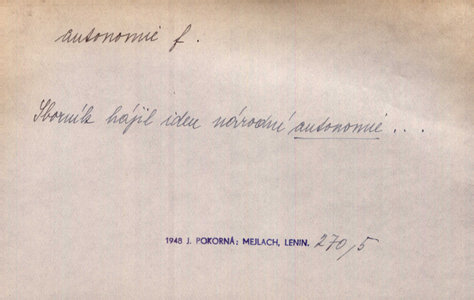 autonomie f.
Sborník hájil ideu národní autonomie ...
1948 J. POKORNÁ: MEJLACH, LENIN. 270/5